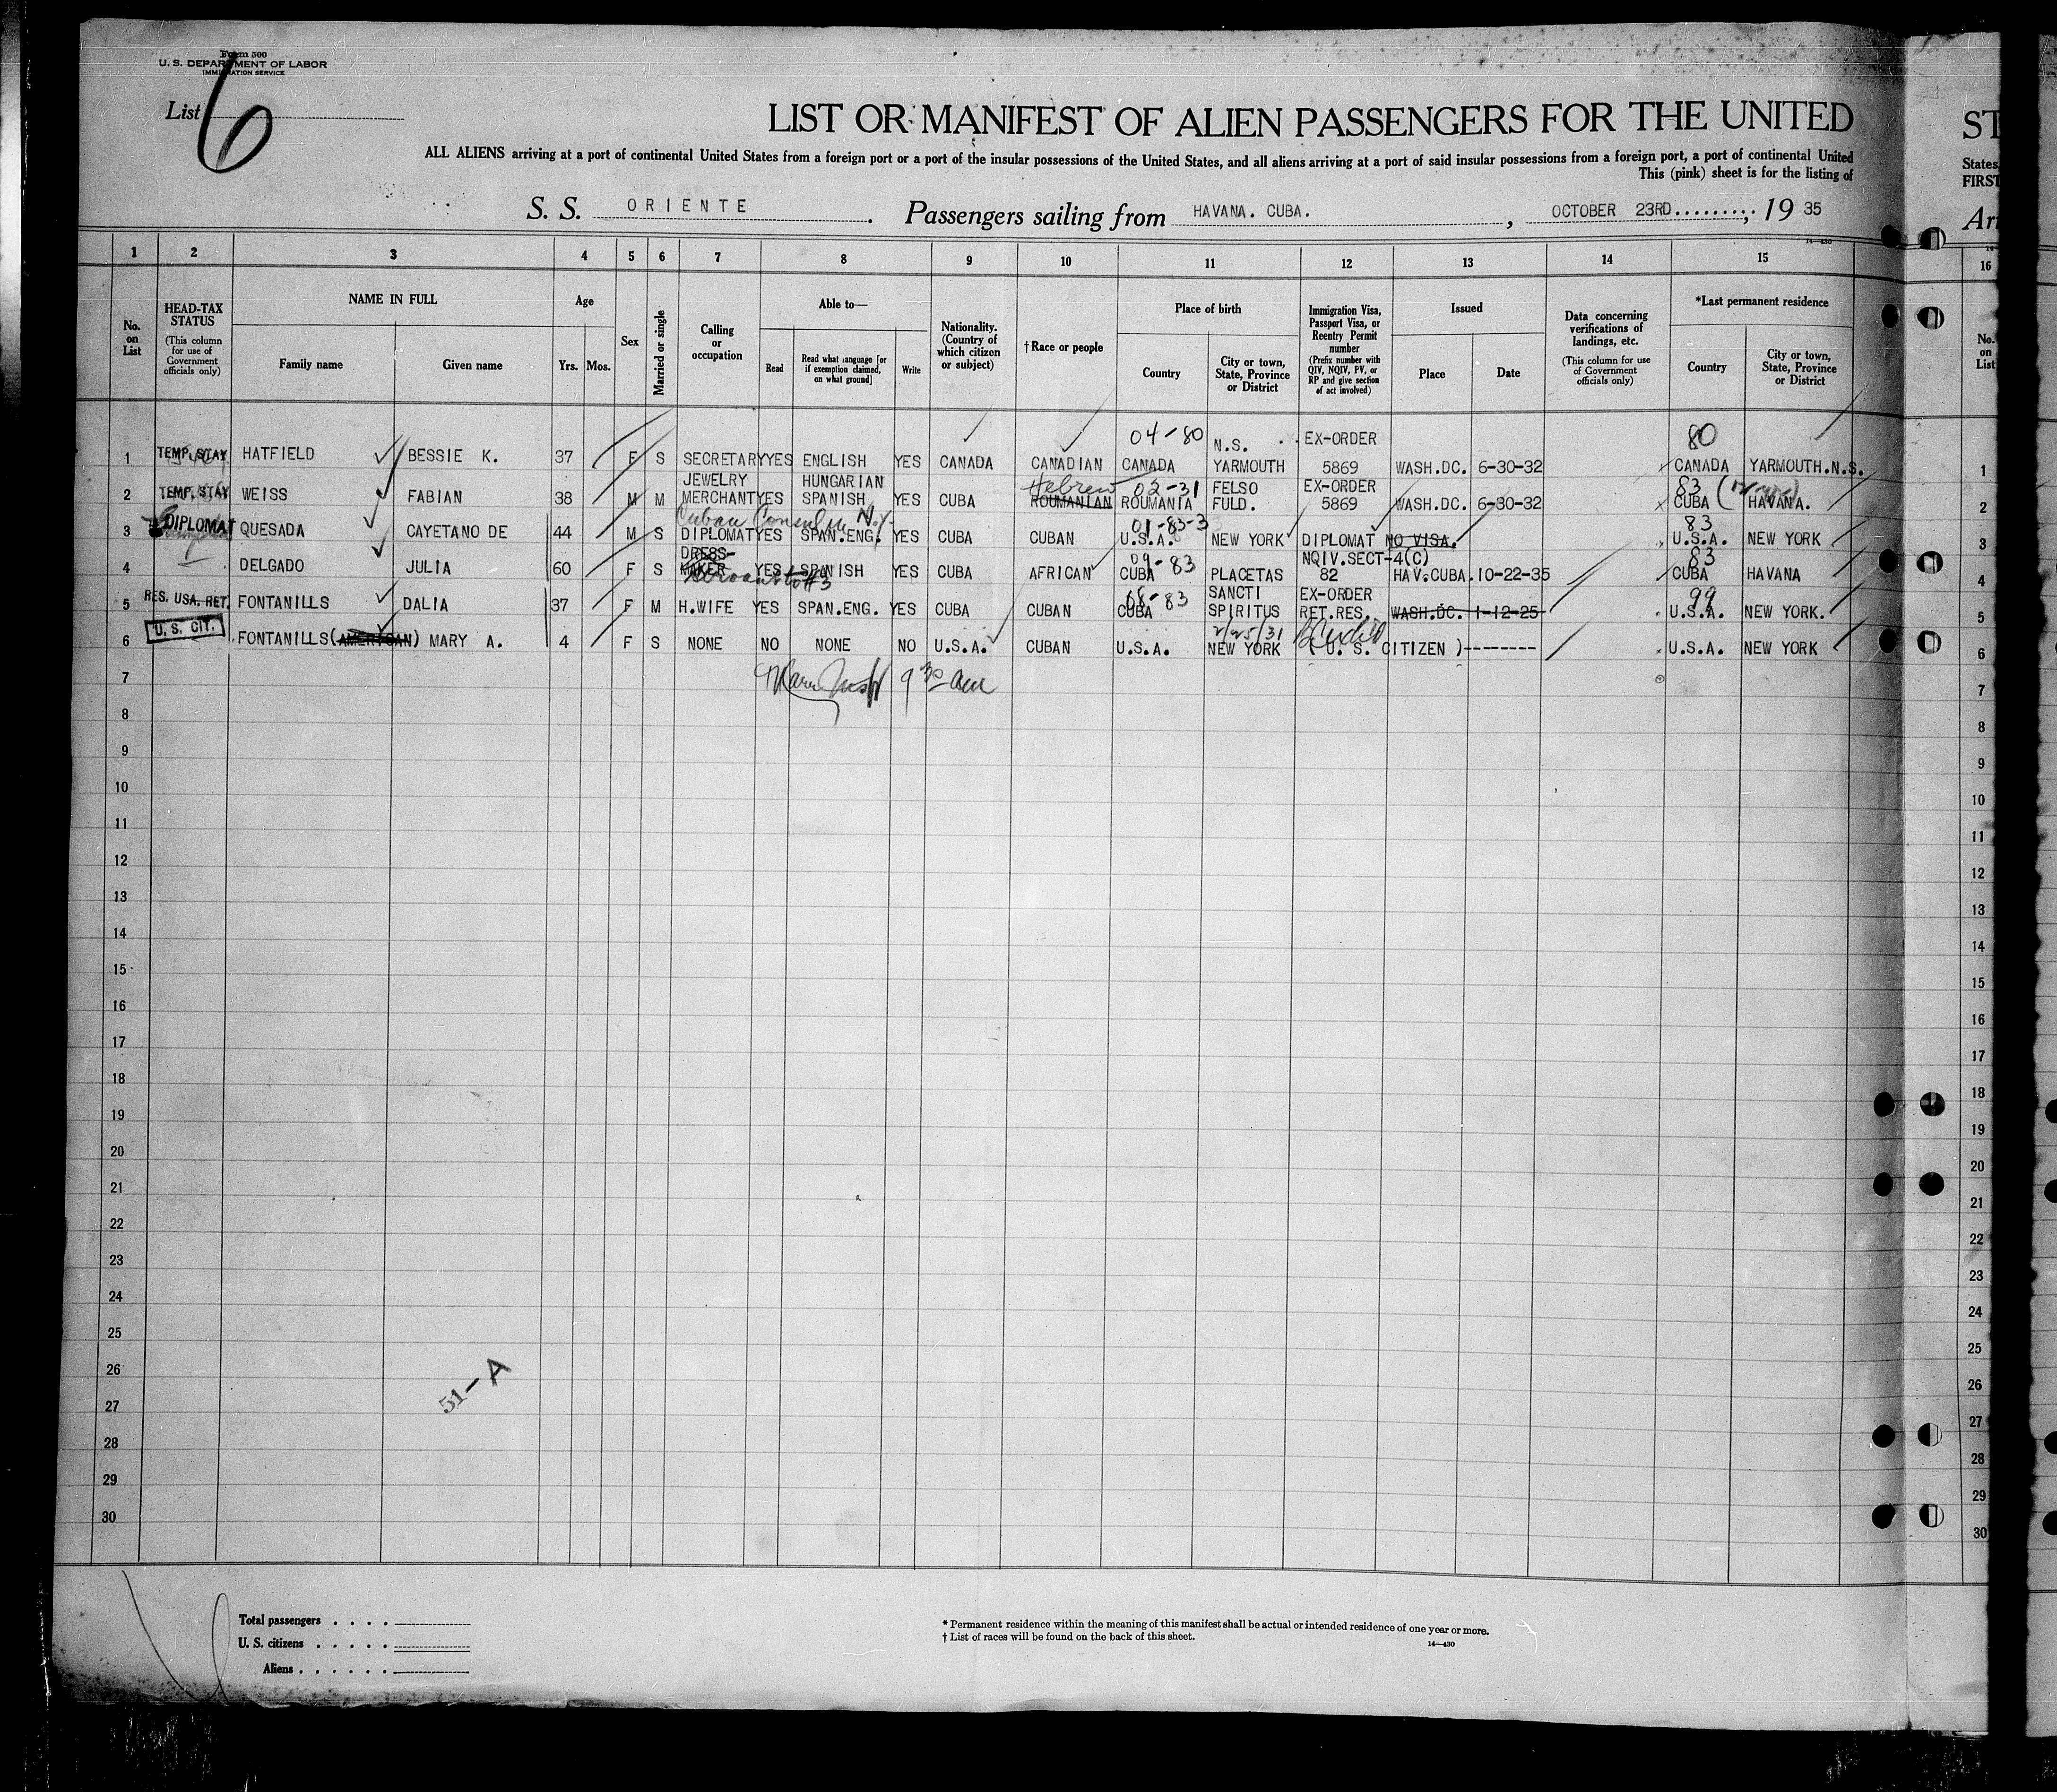 Form 500
U. S. DEPARTMENT OF LABOR
IMMIGRATION SERVICE
List 6
LIST OR MANIFEST OF ALIEN PASSENGERS FOR THE UNITED
ST
ALL ALIENS arriving at a port of continental United States from a foreign port or a port of the insular possessions of the United States, and all aliens arriving at a port of said insular possessions from a foreign port, a port of continental United
States,
This (pink) sheet is for the listing of
FIRST
S. S. ORIENTE . Passengers sailing from HAVANA. CUBA. , OCTOBER 23RD........, 19 35
Arri
14—430
1 2 3 4 5 6 7 8 9 10 11 12 13 14 15 16
No. on List
HEAD-TAX STATUS (This column for use of Government officials only)
NAME IN FULL
Family name
Given name
Age
Yrs. Mos.
Sex
Married or single
Calling or occupation
Able to—
Read
Read what language [or if exemption claimed, on what ground]
Write
Nationality. (Country of which citizen or subject)
†Race or people
Place of birth
Country
City or town, State, Province or District
Immigration Visa, Passport Visa, or Reentry Permit number (Prefix number with QIV, NQIV, PV, or RP and give section of act involved)
Issued
Place
Date
Data concerning verifications of landings, etc. (This column for use of Government officials only)
*Last permanent residence
Country
City or town, State, Province or District
No. on List
04-80 N.S. EX-ORDER 80
1 TEMP. STAY HATFIELD BESSIE K. 37 F S SECRETARY YES ENGLISH YES CANADA CANADIAN CANADA YARMOUTH 5869 WASH.DC. 6-30-32 CANADA YARMOUTH.N.S. 1
JEWELRY HUNGARIAN Hebrew 02-31 FELSO EX-ORDER 83
2 TEMP. STAY WEISS FABIAN 38 M M MERCHANT YES SPANISH YES CUBA ROUMANIAN ROUMANIA FULD. 5869 WASH.DC. 6-30-32 CUBA HAVANA. 2
Cuban Consul in N.Y. 01-83-3 83
3 DIPLOMAT QUESADA CAYETANO DE 44 M S DIPLOMAT YES SPAN.ENG. YES CUBA CUBAN U.S.A. NEW YORK DIPLOMAT NO VISA. U.S.A. NEW YORK 3
DRESS- 09-83 NQIV.SECT-4(C) 83
4 DELGADO JULIA 60 F S MAKER YES SPANISH YES CUBA AFRICAN CUBA PLACETAS 82 HAV.CUBA. 10-22-35 CUBA HAVANA 4
Servant to #3
08-83 SANCTI EX-ORDER 99
5 RES. USA. RET. FONTANILLS DALIA 37 F M H.WIFE YES SPAN.ENG. YES CUBA CUBAN CUBA SPIRITUS RET.RES. WASH.DC. 1-12-25 U.S.A. NEW YORK. 5
U. S. CIT. 2/25/31
6 FONTANILLS (AMERICAN) MARY A. 4 F S NONE NO NONE NO U.S.A. CUBAN U.S.A. NEW YORK ( U. S. CITIZEN )-------- U.S.A. NEW YORK 6
7 9 30 am 7
8 8
9 9
10 10
11 11
12 12
13 13
14 14
15 15
16 16
17 17
18 18
19 19
20 20
21 21
22 22
23 23
24 24
25 25
26 26
27 27
28 28
29 29
30 30
51-A
Total passengers . . . .
U. S. citizens . . . . .
Aliens . . . . . .
* Permanent residence within the meaning of this manifest shall be actual or intended residence of one year or more.
† List of races will be found on the back of this sheet.
14—430